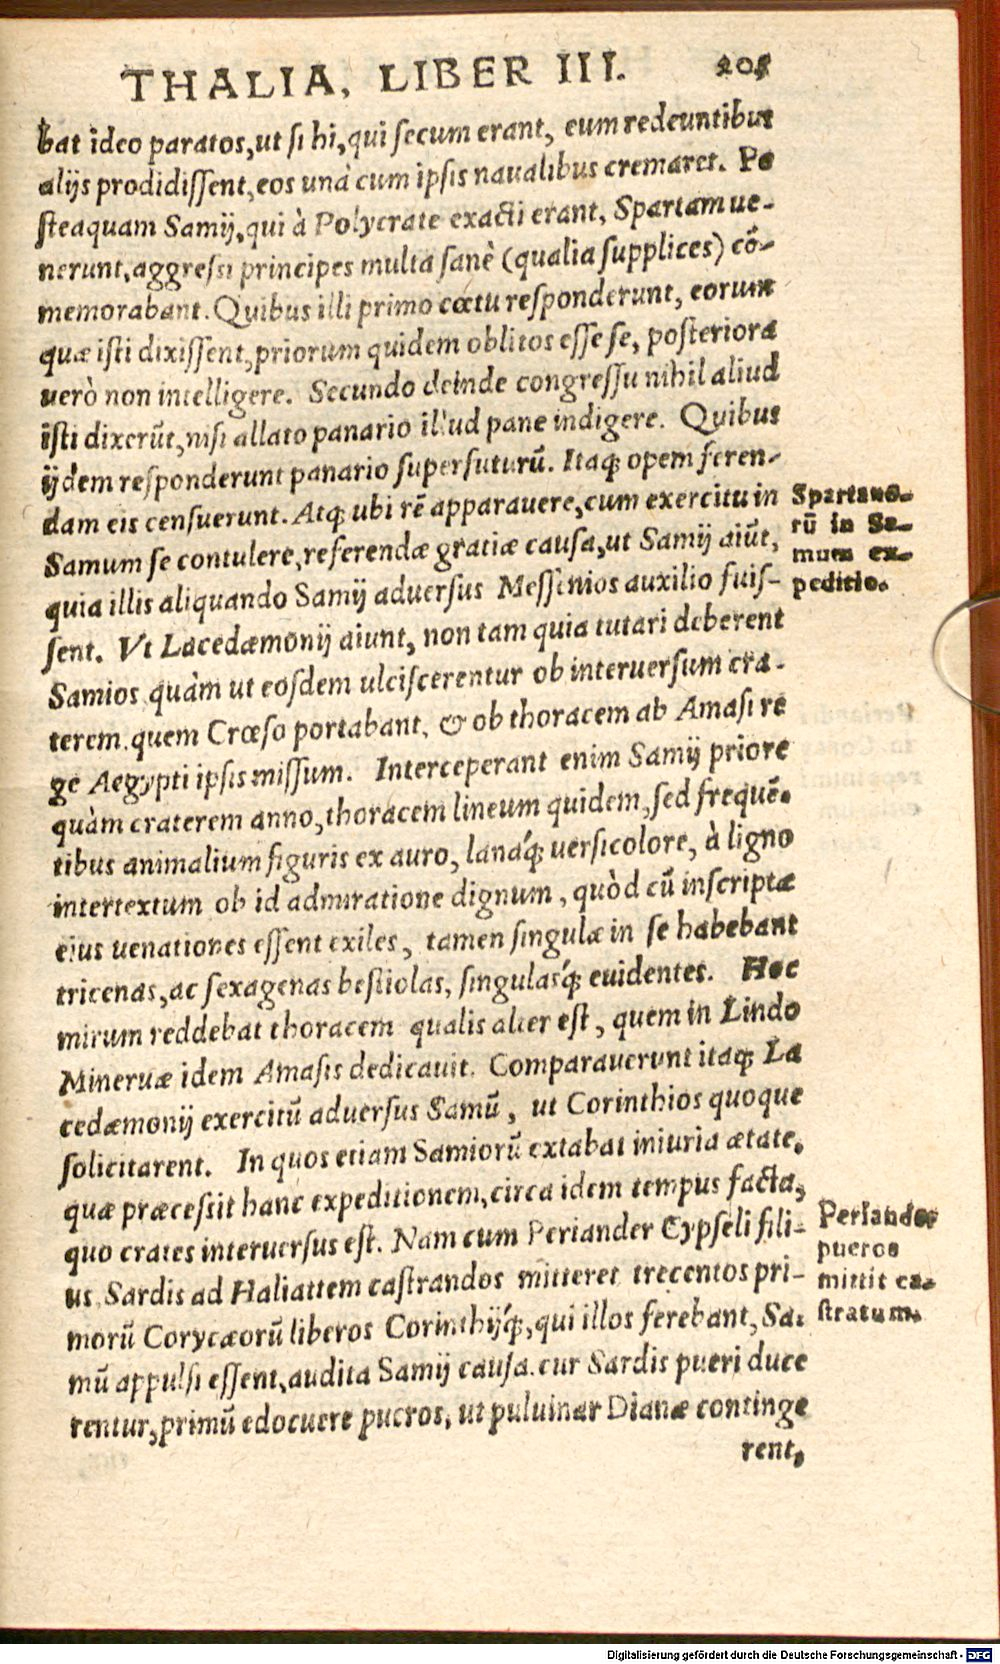 THALIA, LIBER III. 205
bat ideo paratos, ut si hi, qui secum erant, eum redeuntibus
alijs prodidissent, eos unà cum ipsis naualibus cremaret. Po
steaquam Samij, qui à Polycrate exacti erant, Spartam ue-
nerunt, aggressi principes multa sanè (qualia supplices) cō-
memorabant. Quibus illi primo cœtu responderunt, eorum
quæ isti dixissent, priorum quidem oblitos esse se, posteriora
uerò non intelligere. Secundo deinde congressu nihil aliud
isti dixerūt, nisi allato panario illud pane indigere. Quibus
ijdem responderunt panario supersuturū. Itaq; opem feren-
dam eis censuerunt. Atq; ubi rē apparauere, cum exercitu in
Samum se contulere, referendæ gratiæ causa, ut Samij aiūt,
quia illis aliquando Samij aduersus Messenios auxilio fuis-
sent. Vt Lacedæmonij aiunt, non tam quia tutari deberent
Samios, quàm ut eosdem ulciscerentur ob interuersum cra-
terem, quem Crœso portabant, & ob thoracem ab Amasi re
ge Aegypti ipsis missum. Interceperant enim Samij priore
quàm craterem anno, thoracem lineum quidem, sed frequē-
tibus animalium figuris ex auro, lanaq́; uersicolore, à ligno
intertextum ob id admiratione dignum, quòd cū inscriptæ
eius uenationes essent exiles, tamen singulæ in se habebant
tricenas, ac sexagenas bestiolas, singulasq́; euidentes. Hoc
mirum reddebat thoracem qualis alter est, quem in Lindo
Mineruæ idem Amasis dedicauit. Comparauerunt itaq; La
cedæmonij exercitū aduersus Samū, ut Corinthios quoque
solicitarent. In quos etiam Samiorū extabat iniuria ætate,
quæ præcessit hanc expeditionem, circa idem tempus facta,
quo crates interuersus est. Nam cum Periander Cypseli fili-
us, Sardis ad Haliattem castrandos mitteret trecentos pri-
morū Corycæorū liberos Corinthijq́;, qui illos ferebant, Sa-
mū appulsi essent, audita Samij causa, cur Sardis pueri duce
rentur, primū edocuere pueros, ut puluinar Dianæ continge
rent,
Spartano-
rū in Sa-
mum ex-
peditio.
Periander
pueros
mittit ca-
stratum.
Digitalisierung gefördert durch die Deutsche Forschungsgemeinschaft - DFG